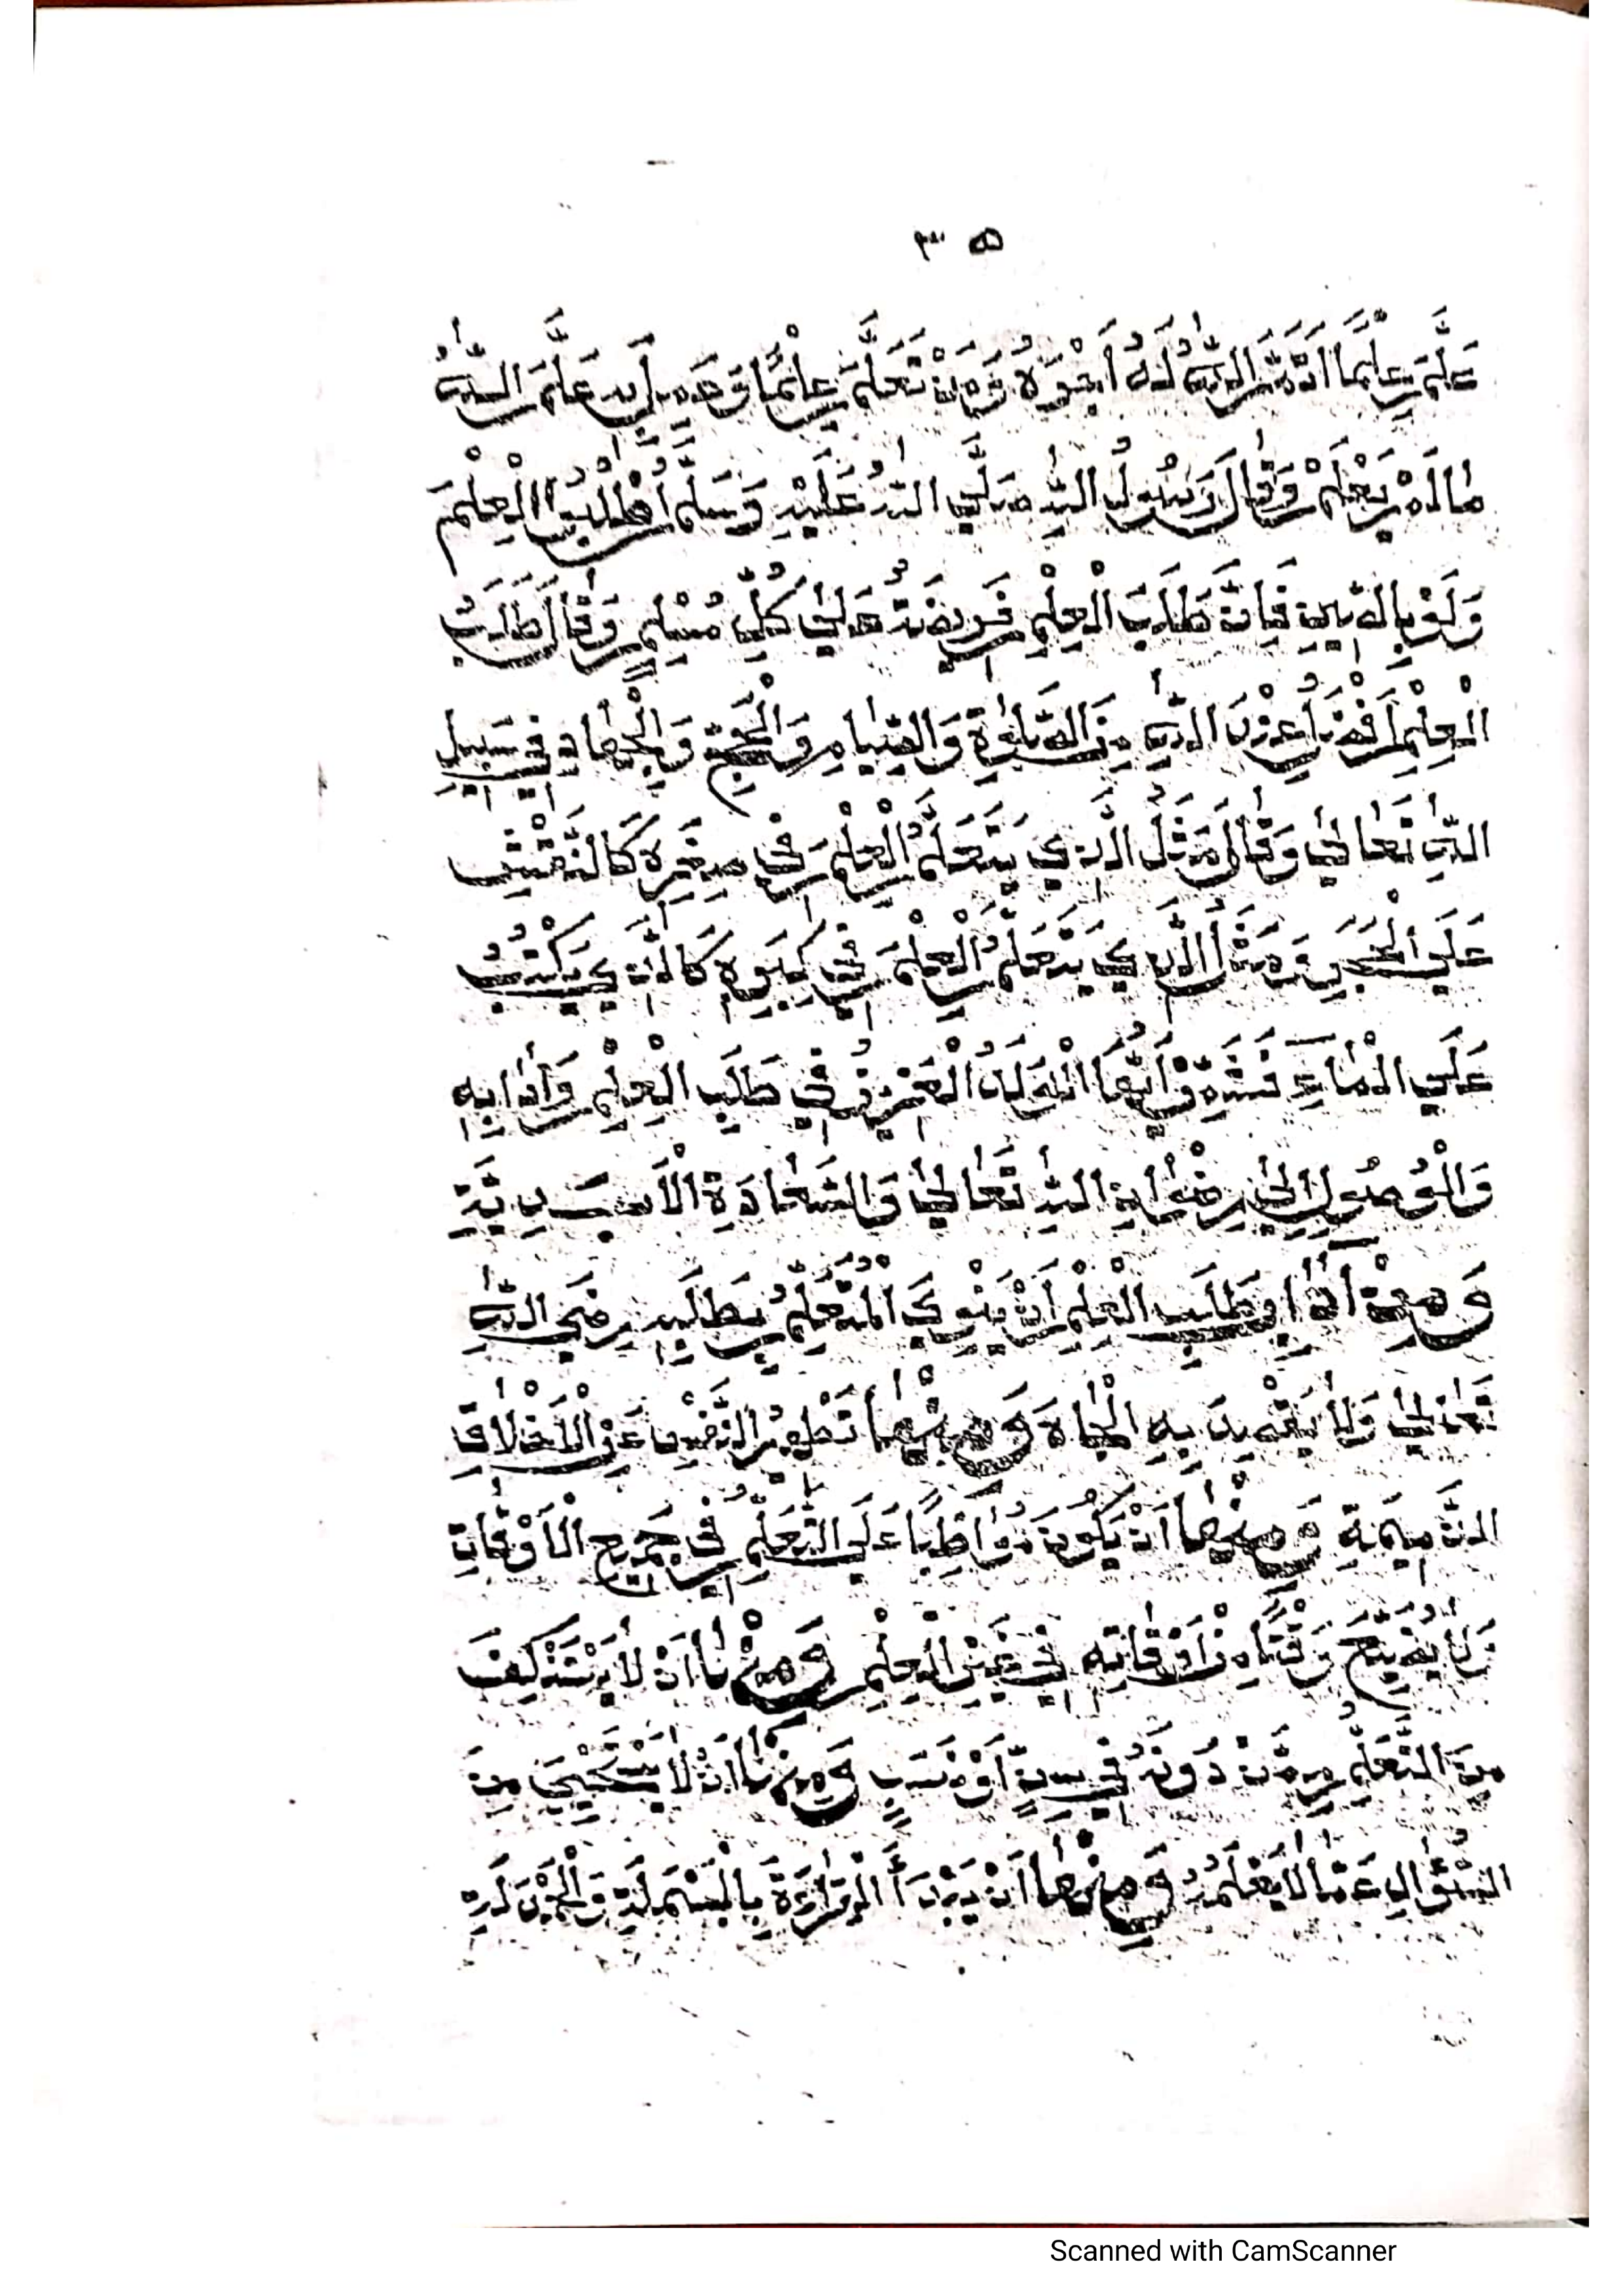 ٣ ۵
عَلَّمَ عِلْمًا اَتَمَّ اللّٰهُ لَهُ اَجْرَهُ وَمَنْ تَعَلَّمَ عِلْمًا وَعَمِلَ بِهِ عَلَّمَ اللّٰهُ
مَا لَمْ يَعْلَمْ وَقَالَ رَسُولُ اللّٰهِ صَلَّي اللّٰهُ عَلَيْهِ وَسَلَّمَ اُطْلُبُوا الْعِلْمَ
وَلَوْ بِالصِّينِ فَاِنَّ طَلَبَ الْعِلْمِ فَرِيضَةٌ عَلٰي كُلِّ مُسْلِمٍ وَقَالَ طَلَبُ
الْعِلْمِ اَفْضَلُ عِنْدَ اللّٰهِ مِنَ الصَّلٰوةِ وَالصِّيَامِ وَالْحَجِّ وَالْجِهَادِ فِي سَبِيلِ
اللّٰهِ تَعَالٰي وَقَالَ مَثَلُ الَّذِي يَتَعَلَّمُ الْعِلْمَ فِي صِغَرِهِ كَالنَّقْشِ
عَلَي الْحَجَرِ وَمَثَلُ الَّذِي يَتَعَلَّمُ الْعِلْمَ فِي كِبَرِهِ كَالَّذِي يَكْتُبُ
عَلَي الْمَاءِ فَشَمِّرْ اَيُّهَا الْوَلَدُ الْعَزِيزُ فِي طَلَبِ الْعِلْمِ وَاٰدَابِهِ
وَالْوُصُولِ اِلٰي رِضْوَانِ اللّٰهِ تَعَالٰي وَالسَّعَادَةِ الْاَبَدِيَّةِ
وَمِنْ اٰدَابِ طَلَبِ الْعِلْمِ اَنْ يَنْوِيَ الْمُتَعَلِّمُ بِطَلَبِهِ رِضَي اللّٰهِ
تَعَالٰي وَلَا يَقْصِدَ بِهِ الْجَاهَ وَمِنْهَا تَطْهِيرُ النَّفْسِ عَنِ الْاَخْلَاقِ
الذَّمِيمَةِ وَمِنْهَا اَنْ يَكُونَ مُوَاظِبًا عَلَي التَّعَلُّمِ فِي جَمِيعِ الْاَوْقَاتِ
وَلَا يُضَيِّعَ وَقْتًا مِنْ اَوْقَاتِهِ فِي غَيْرِ الْعِلْمِ وَمِنْهَا اَنْ لَا يَسْتَنْكِفَ
مِنَ التَّعَلُّمِ مِمَّنْ دُونَهُ فِي سِنٍّ اَوْ نَسَبٍ وَمِنْهَا اَنْ لَا يَسْتَحْيِيَ مِنَ
السُّؤَالِ عَمَّا لَا يَعْلَمُهُ وَمِنْهَا اَنْ يَبْدَأَ الْقِرَاءَةَ بِالْبَسْمَلَةِ وَالْحَمْدَلَةِ
Scanned with CamScanner